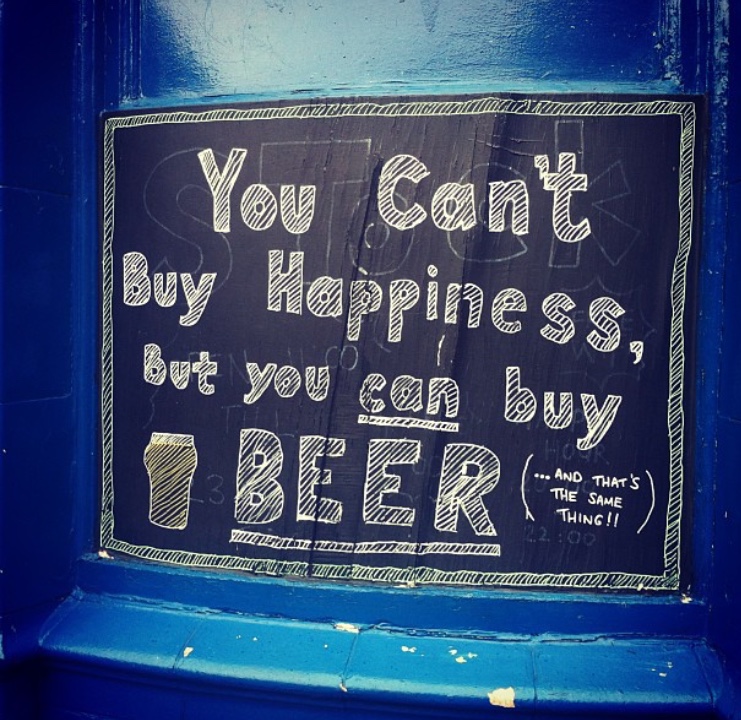 You Can't
Buy Happiness,
But you can buy
BEER
(...AND THAT'S
THE SAME
THING!!)
22:00